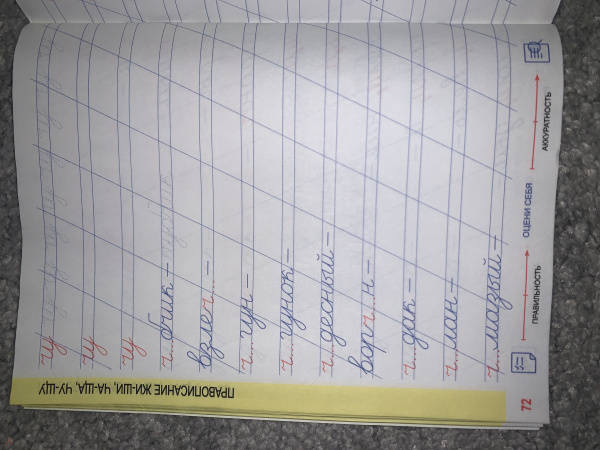 ПРАВОПИСАНИЕ ЖИ-ШИ, ЧА-ЩА, ЧУ-ЩУ
чу
чу
чу
ч...бик –
взлеч... –
ч...гун –
ч...гунок –
ч...десный –
ворч...н –
ч...дак –
ч...лан –
ч...мазый –
72 ПРАВИЛЬНОСТЬ ОЦЕНИ СЕБЯ АККУРАТНОСТЬ